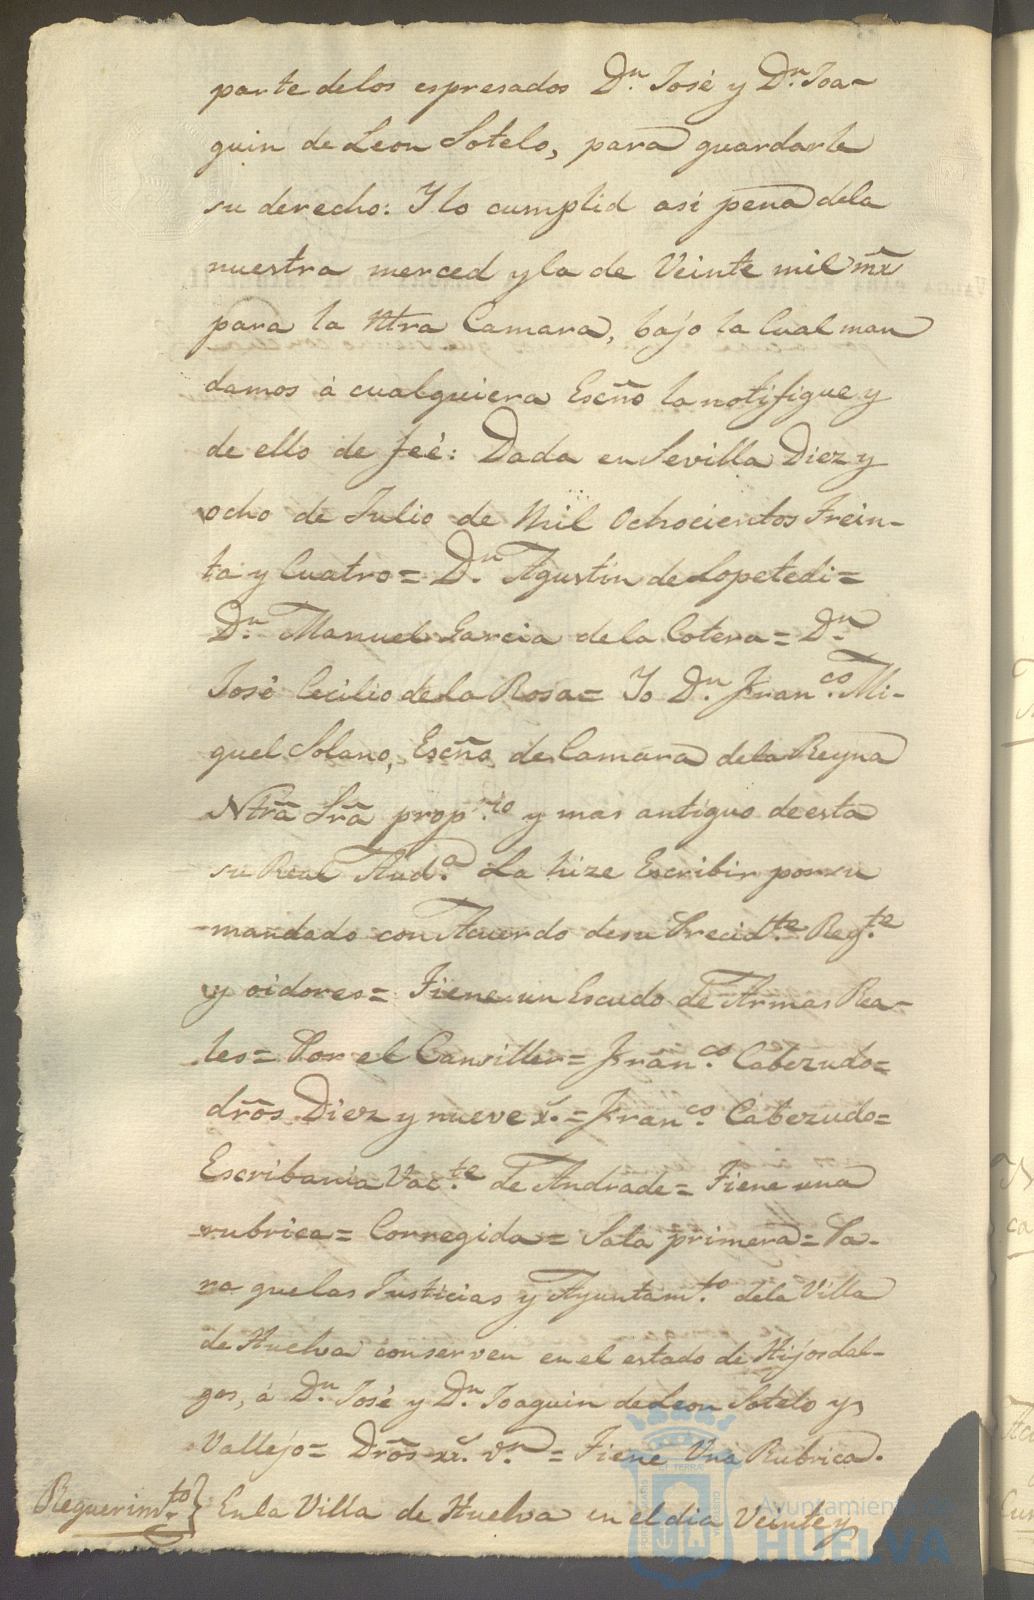 parte delos espresados Dn. José y Dn. Joa-
quin de Leon Sotelo, para guardarle
su derecho: Y lo cumplid asi pena dela
nuestra merced y la de Veinte mil mrs
para la Ntra Camara, bajo la Cual man
damos á cualquiera Escño la notifique y
de ello de feé: Dada en Sevilla Diez y
ocho de Julio de Mil Ochocientos Trein-
ta y Cuatro = Dn. Agustin de Lopetedi =
Dn. Manuel Garcia de la Cotera = Dn.
José Cecilio de la Rosa = Yo Dn. Franco. Mi-
guel Solano, Escño de Camara dela Reyna
Ntrã Srã proprio y mas antiguo de esta
su Real Auda. La hize Escribir por su
mandado con Acuerdo de su Precidte. Regte.
y oidores = Tiene un Escudo de Armas Rea-
les = Por el Canciller = Franco. Cabezudo =
drõs Diez y nueve r. = Franco. Cabezudo =
Escribania Vacte. de Andrade = Tiene una
rubrica = Corregida = Sala primera = Pa-
ra que las Justicias y Ayuntamto. dela Villa
de Huelva conserven en el estado de Hijosdal-
gos, á Dn. José y Dn. Joaquin de Leon Sotelo y
Vallejo = Drõs vn. = Tiene Una Rubrica.
Requerimto. } En la Villa de Huelva en el dia Veinte y
Ayuntamien
HUELVA